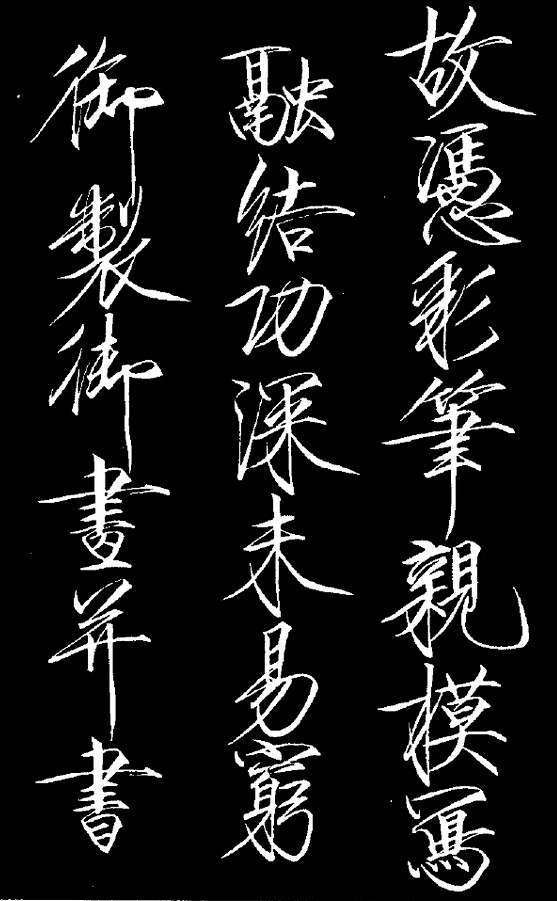 故憑彩筆親模寫
融結功深未易窮
御製御畫并書